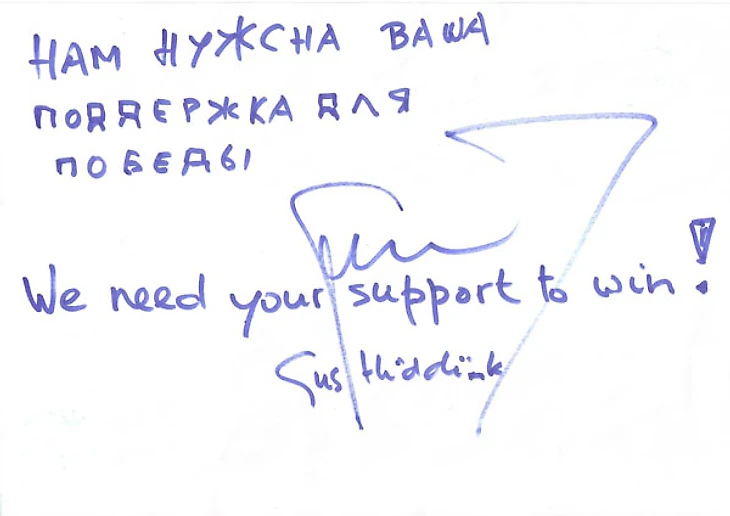 НАМ НУЖСНА ВАША
ПОДДЕРЖКА ДЛЯ
ПОБЕДЫ
We need your support to win!
Gus Hiddink